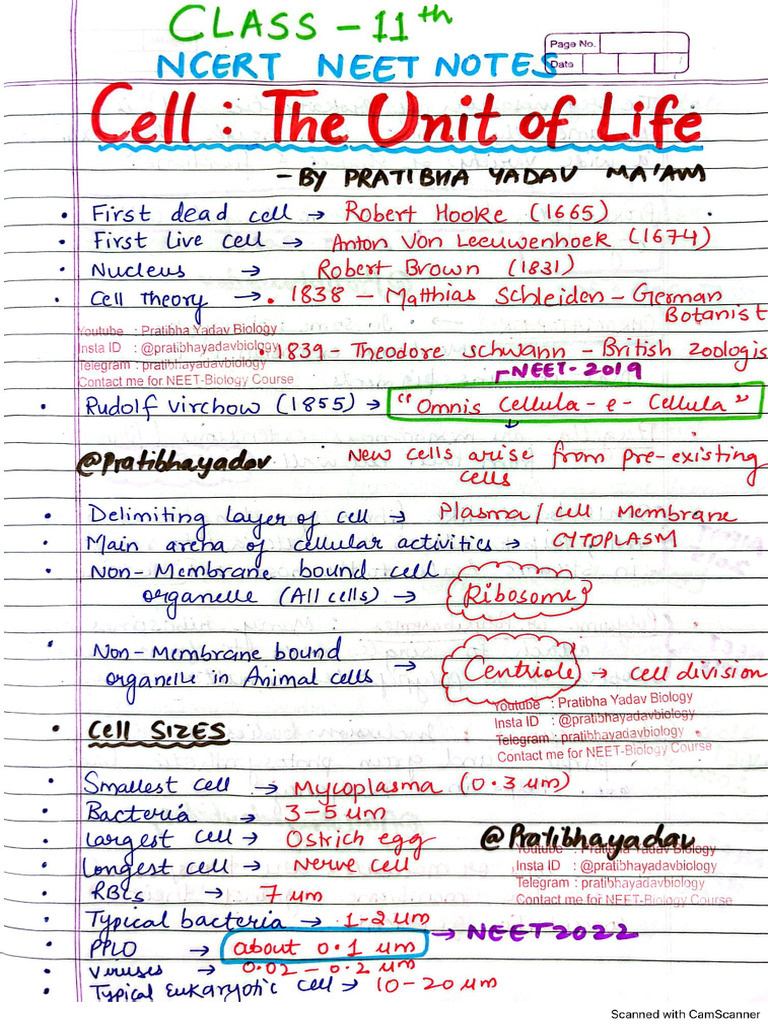 CLASS - 11th
Page No.
NCERT NEET NOTES
Date
Cell : The Unit of Life
- BY PRATIBHA YADAV MA'AM
• First dead cell → Robert Hooke (1665)
• First live cell → Anton Von Leeuwenhoek (1674)
• Nucleus → Robert Brown (1831)
• Cell Theory → • 1838 - Matthias Schleiden - German
Botanist
Youtube : Pratibha Yadav Biology
Insta ID : @pratibhayadavbiology
• 1839 - Theodore Schwann - British zoologis
Telegram : pratibhayadavbiology
Contact me for NEET-Biology Course
NEET-2019
• Rudolf virchow (1855) → "Omnis cellula-e-cellula"
@Pratibhayadav
New cells arise from pre-existing
cells
• Delimiting layer of cell → Plasma/cell Membrane
• Main arena of cellular activities → CYTOPLASM
• Non-Membrane bound cell
organelle (All cells) → Ribosome
• Non-Membrane bound
organelle in Animal cells → Centriole → cell division
Youtube : Pratibha Yadav Biology
Insta ID : @pratibhayadavbiology
Telegram : pratibhayadavbiology
Contact me for NEET-Biology Course
• Cell SIZES
• Smallest cell → Mycoplasma (0.3 µm)
• Bacteria → 3-5 µm
• Largest cell → Ostrich egg
@Pratibhayadav
Youtube : Pratibha Yadav Biology
• Longest cell → Nerve cell
Insta ID : @pratibhayadavbiology
Telegram : pratibhayadavbiology
• RBCs → 7 µm
Contact me for NEET-Biology Course
• Typical bacteria → 1-2 µm
• PPLO → about 0.1 µm → NEET2022
• Viruses → 0.02 - 0.2 µm
• Typical Eukaryotic cell → 10-20 µm
Scanned with CamScanner